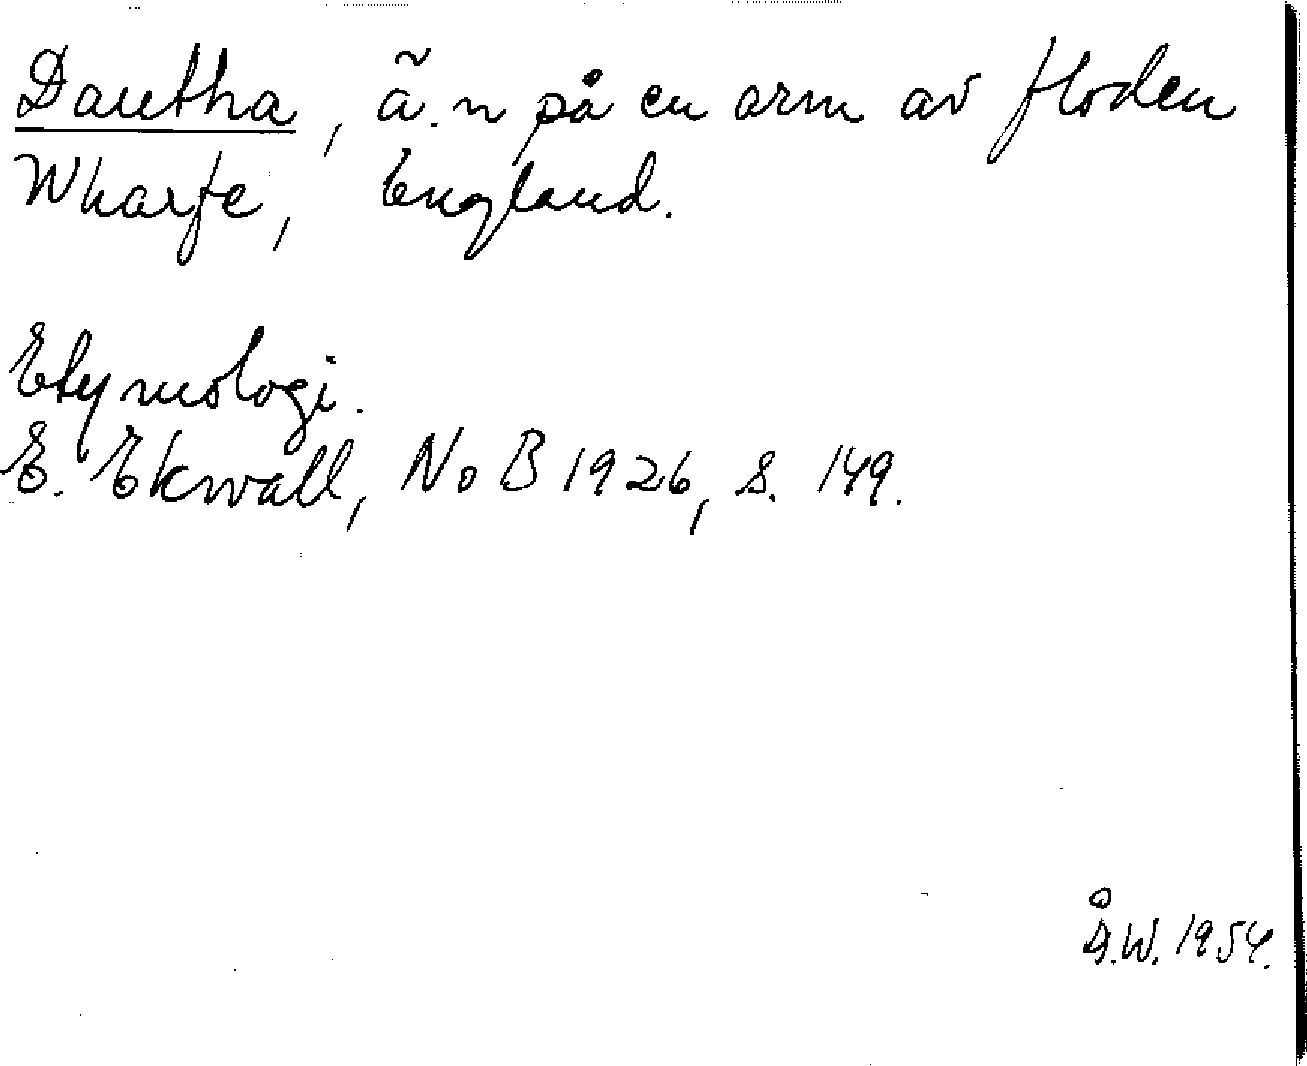 Dautha, ã.n på en arm av floden
Wharfe, England.
Etymologi.
E. Ekwall, NoB 1926, s. 149.
Å.W. 1954.